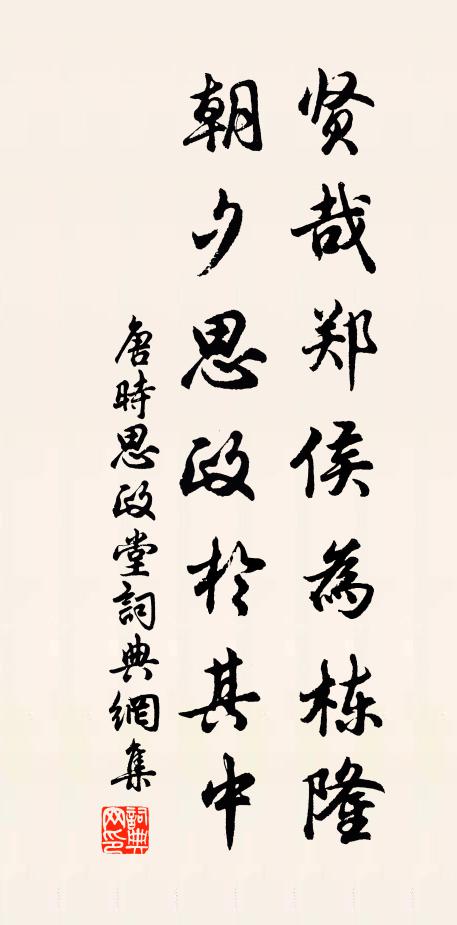 贤哉郑侯为栋隆
朝夕思政於其中
唐時思政堂詞典網集
詞典网印